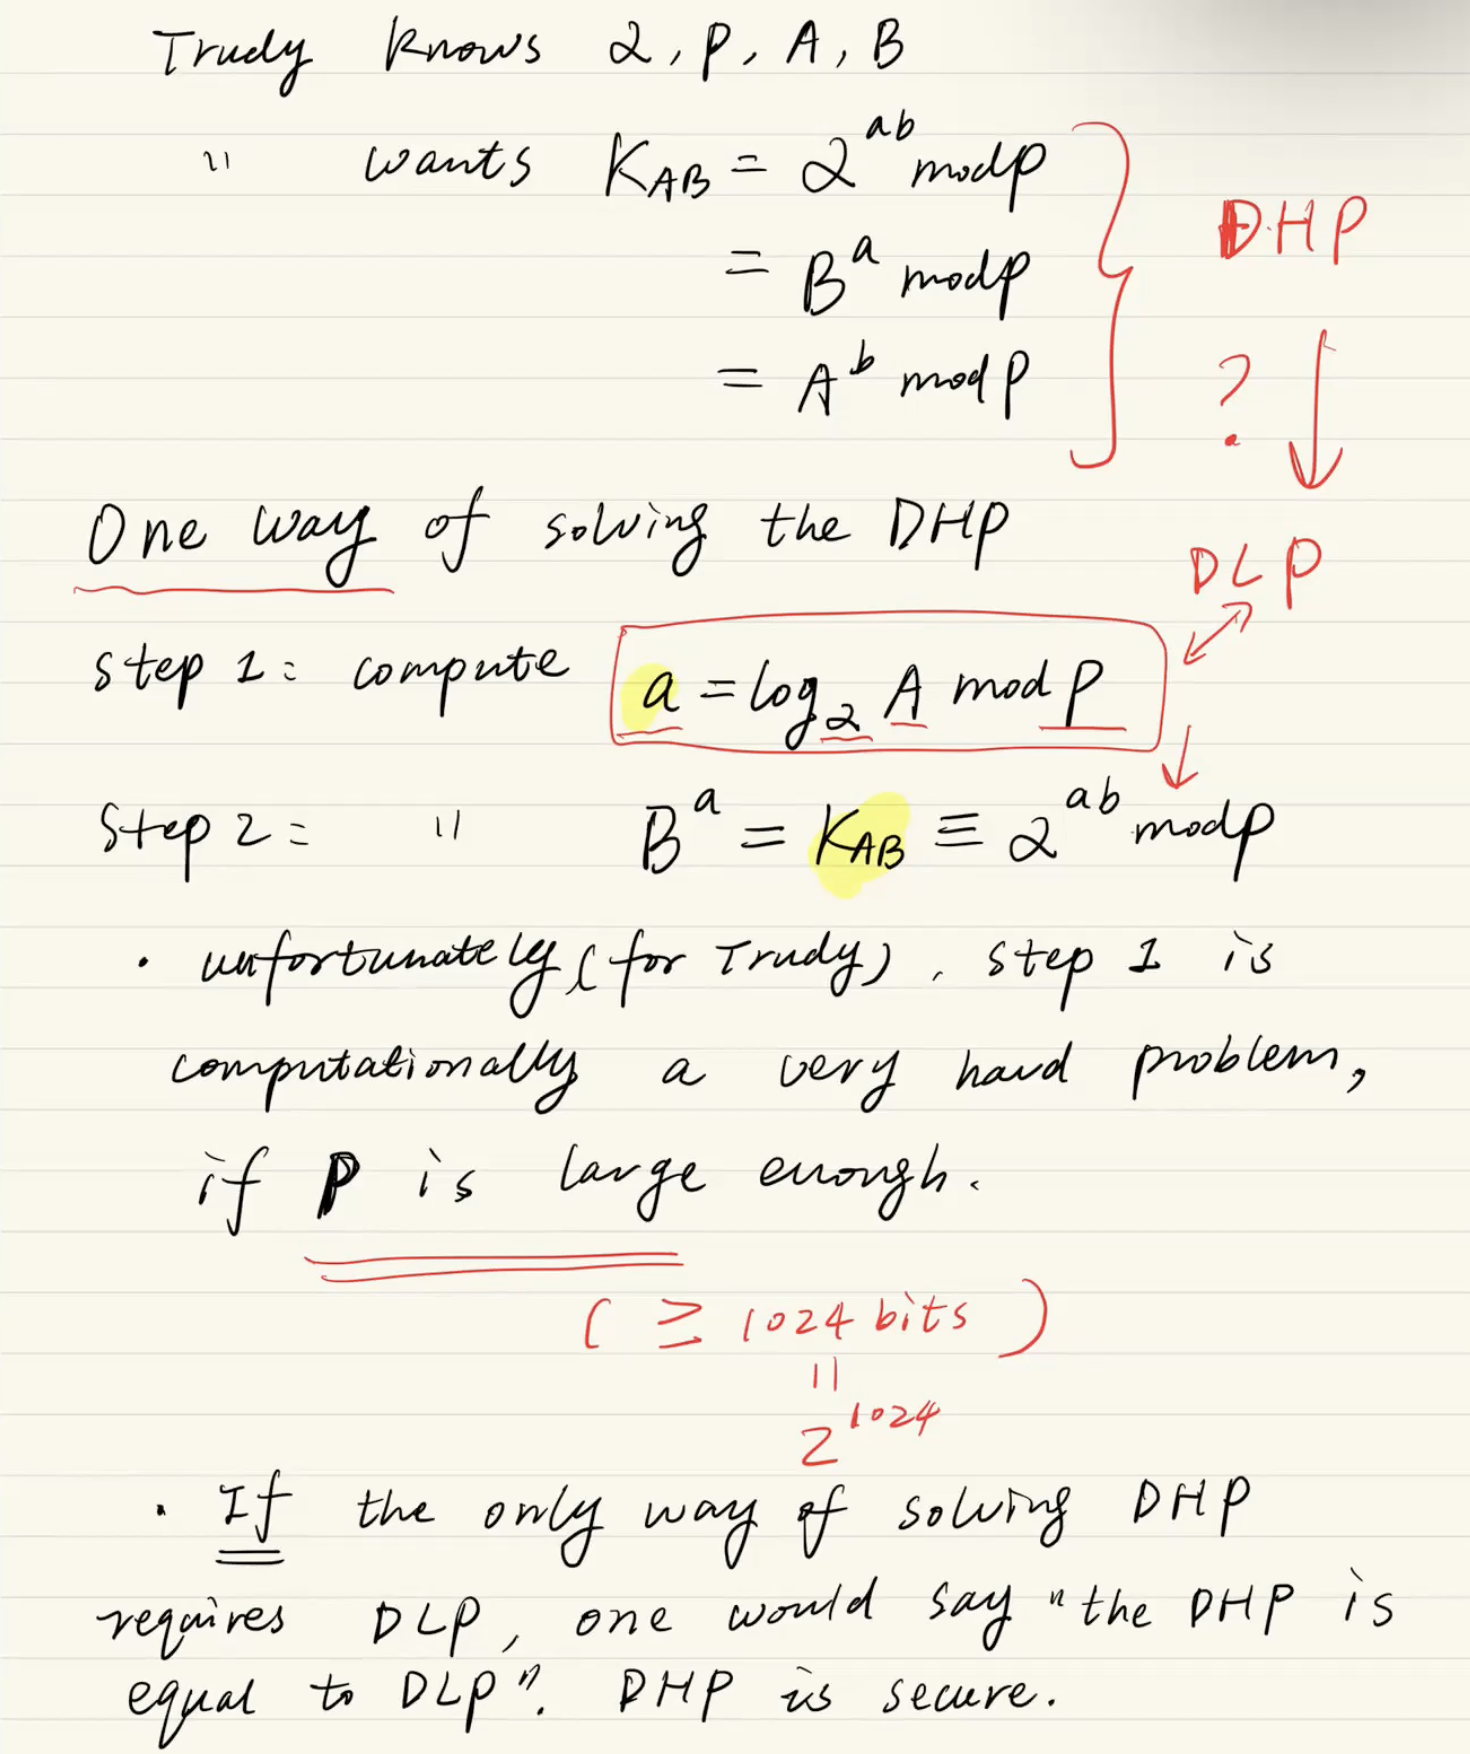 Trudy knows α, p, A, B
" wants K_AB = α^ab mod p
= B^a mod p
= A^b mod p
DHP
?
One way of solving the DHP
DLP
step 1: compute a = log_α A mod p
Step 2: " B^a = K_AB ≡ α^ab mod p
· unfortunately (for Trudy), step 1 is
computationally a very hard problem,
if p is large enough.
( ≥ 1024 bits )
"
2^1024
· If the only way of solving DHP
requires DLP, one would say "the DHP is
equal to DLP". DHP is secure.